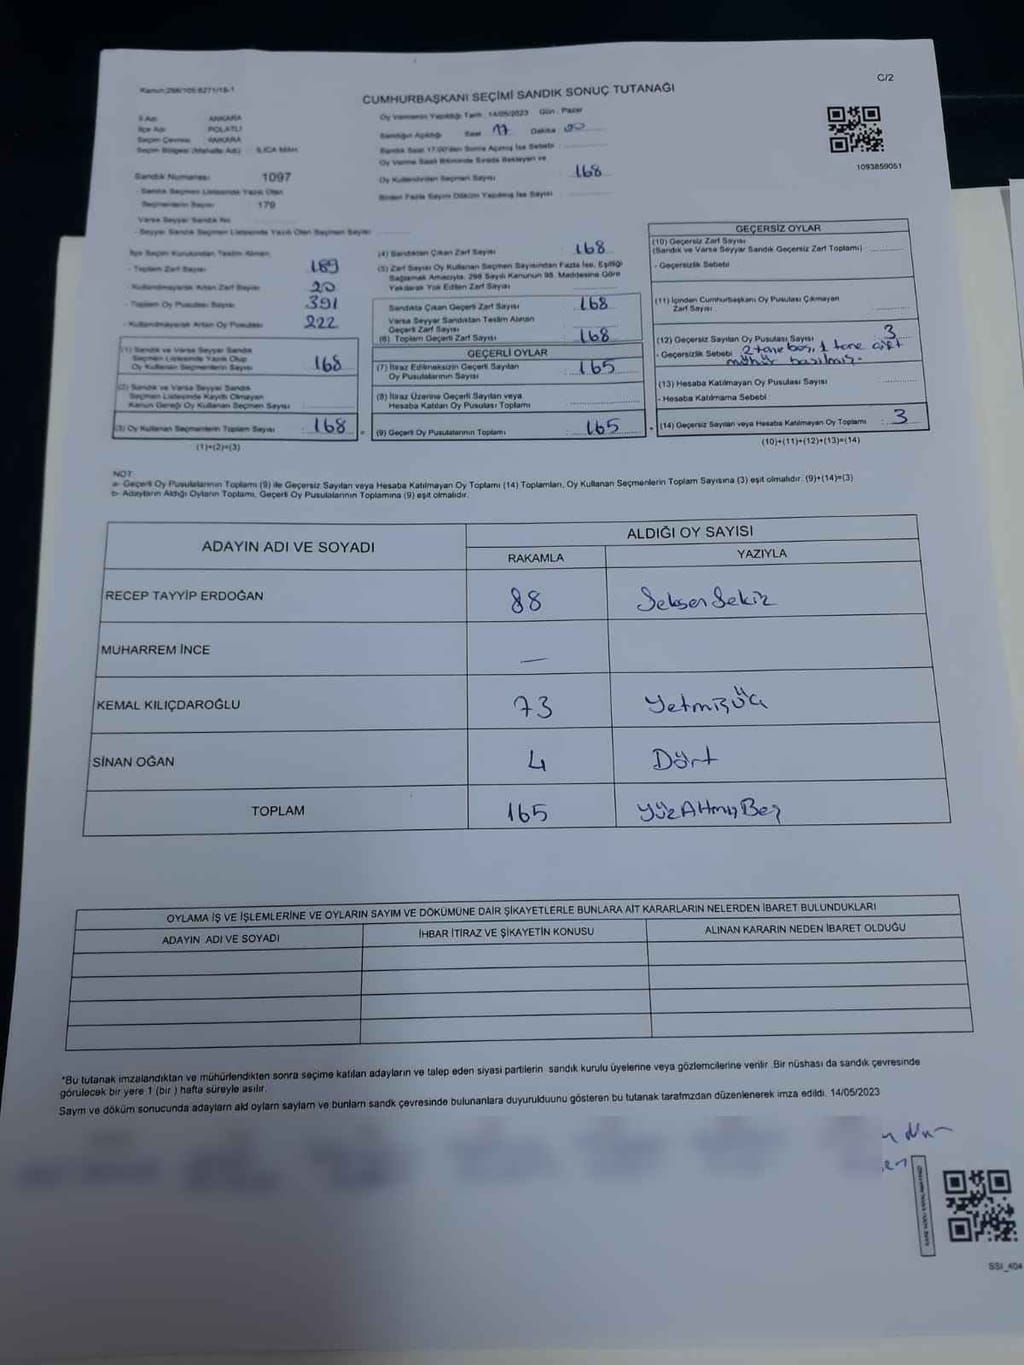 Kanun:298/105 6271/18-1
C/2
CUMHURBAŞKANI SEÇİMİ SANDIK SONUÇ TUTANAĞI
İl Adı ANKARA
İlçe Adı POLATLI
Seçim Çevresi ANKARA
Seçim Bölgesi (Mahalle Adı) ILICA MAH.
Sandık Numarası 1097
- Sandık Seçmen Listesinde Yazılı Olan
Seçmenlerin Sayısı 179
Varsa Seyyar Sandık No
- Seyyar Sandık Seçmen Listesinde Yazılı Olan Seçmen Sayısı
Oy Vermenin Yapıldığı Tarih 14/05/2023 Gün : Pazar
Sandığın Açıldığı Saat 17 Dakika 00
Sandık Saat 17.00'den Sonra Açılmış İse Sebebi
Oy Verme Saati Bitiminde Sırada Bekleyen ve
Oy Kullandırılan Seçmen Sayısı 168
Birden Fazla Sayım Döküm Yapılmış İse Sayısı
1093859051
İlçe Seçim Kurulundan Teslim Alınan
- Toplam Zarf Sayısı 189
- Kullanılmayarak Artan Zarf Sayısı 20
- Toplam Oy Pusulası Sayısı 391
- Kullanılmayarak Artan Oy Pusulası 222
(1) Sandık ve Varsa Seyyar Sandık
Seçmen Listesinde Yazılı Olup
Oy Kullanan Seçmenlerin Sayısı 168
(2) Sandık ve Varsa Seyyar Sandık
Seçmen Listesinde Kayıtlı Olmayan
Kanun Gereği Oy Kullanan Seçmen Sayısı
(3) Oy Kullanan Seçmenlerin Toplam Sayısı 168
(1)+(2)=(3)
(4) Sandıktan Çıkan Zarf Sayısı 168
(5) Zarf Sayısı Oy Kullanan Seçmen Sayısından Fazla İse, Eşitliği
Sağlamak Amacıyla, 298 Sayılı Kanunun 98. Maddesine Göre
Yakılarak Yok Edilen Zarf Sayısı
Sandıkta Çıkan Geçerli Zarf Sayısı 168
Varsa Seyyar Sandıktan Teslim Alınan
Geçerli Zarf Sayısı
(6) Toplam Geçerli Zarf Sayısı 168
GEÇERLİ OYLAR
(7) İtiraz Edilmeksizin Geçerli Sayılan
Oy Pusulalarının Sayısı 165
(8) İtiraz Üzerine Geçerli Sayılan veya
Hesaba Katılan Oy Pusulası Toplamı
(9) Geçerli Oy Pusulalarının Toplamı 165
GEÇERSİZ OYLAR
(10) Geçersiz Zarf Sayısı
(Sandık ve Varsa Seyyar Sandık Geçersiz Zarf Toplamı)
- Geçersizlik Sebebi
(11) İçinden Cumhurbaşkanı Oy Pusulası Çıkmayan
Zarf Sayısı
(12) Geçersiz Sayılan Oy Pusulası Sayısı 3
- Geçersizlik Sebebi 2 tane boş, 1 tane çift
mühür basılmış.
(13) Hesaba Katılmayan Oy Pusulası Sayısı
- Hesaba Katılmama Sebebi
(14) Geçersiz Sayılan veya Hesaba Katılmayan Oy Toplamı 3
(10)+(11)+(12)+(13)=(14)
NOT:
a- Geçerli Oy Pusulalarının Toplamı (9) ile Geçersiz Sayılan veya Hesaba Katılmayan Oy Toplamı (14) Toplamları, Oy Kullanan Seçmenlerin Toplam Sayısına (3) eşit olmalıdır. (9)+(14)=(3)
b- Adayların Aldığı Oyların Toplamı, Geçerli Oy Pusulalarının Toplamına (9) eşit olmalıdır.
ADAYIN ADI VE SOYADI
ALDIĞI OY SAYISI
RAKAMLA YAZIYLA
RECEP TAYYİP ERDOĞAN 88 Seksen Sekiz
MUHARREM İNCE —
KEMAL KILIÇDAROĞLU 73 Yetmişüç
SİNAN OĞAN 4 Dört
TOPLAM 165 YüzAltmışBeş
OYLAMA İŞ VE İŞLEMLERİNE VE OYLARIN SAYIM VE DÖKÜMÜNE DAİR ŞİKAYETLERLE BUNLARA AİT KARARLARIN NELERDEN İBARET BULUNDUKLARI
ADAYIN ADI VE SOYADI İHBAR İTİRAZ VE ŞİKAYETİN KONUSU ALINAN KARARIN NEDEN İBARET OLDUĞU
"Bu tutanak imzalandıktan ve mühürlendikten sonra seçime katılan adayların ve talep eden siyasi partilerin sandık kurulu üyelerine veya gözlemcilerine verilir. Bir nüshası da sandık çevresinde
görülecek bir yere 1 (bir ) hafta süreyle asılır.
Saym ve döküm sonucunda adaylarn ald oylarn saylarn ve bunlarn sandk çevresinde bulunanlara duyurulduunu gösteren bu tutanak tarafmzdan düzenlenerek imza edildi. 14/05/2023
SSI_404